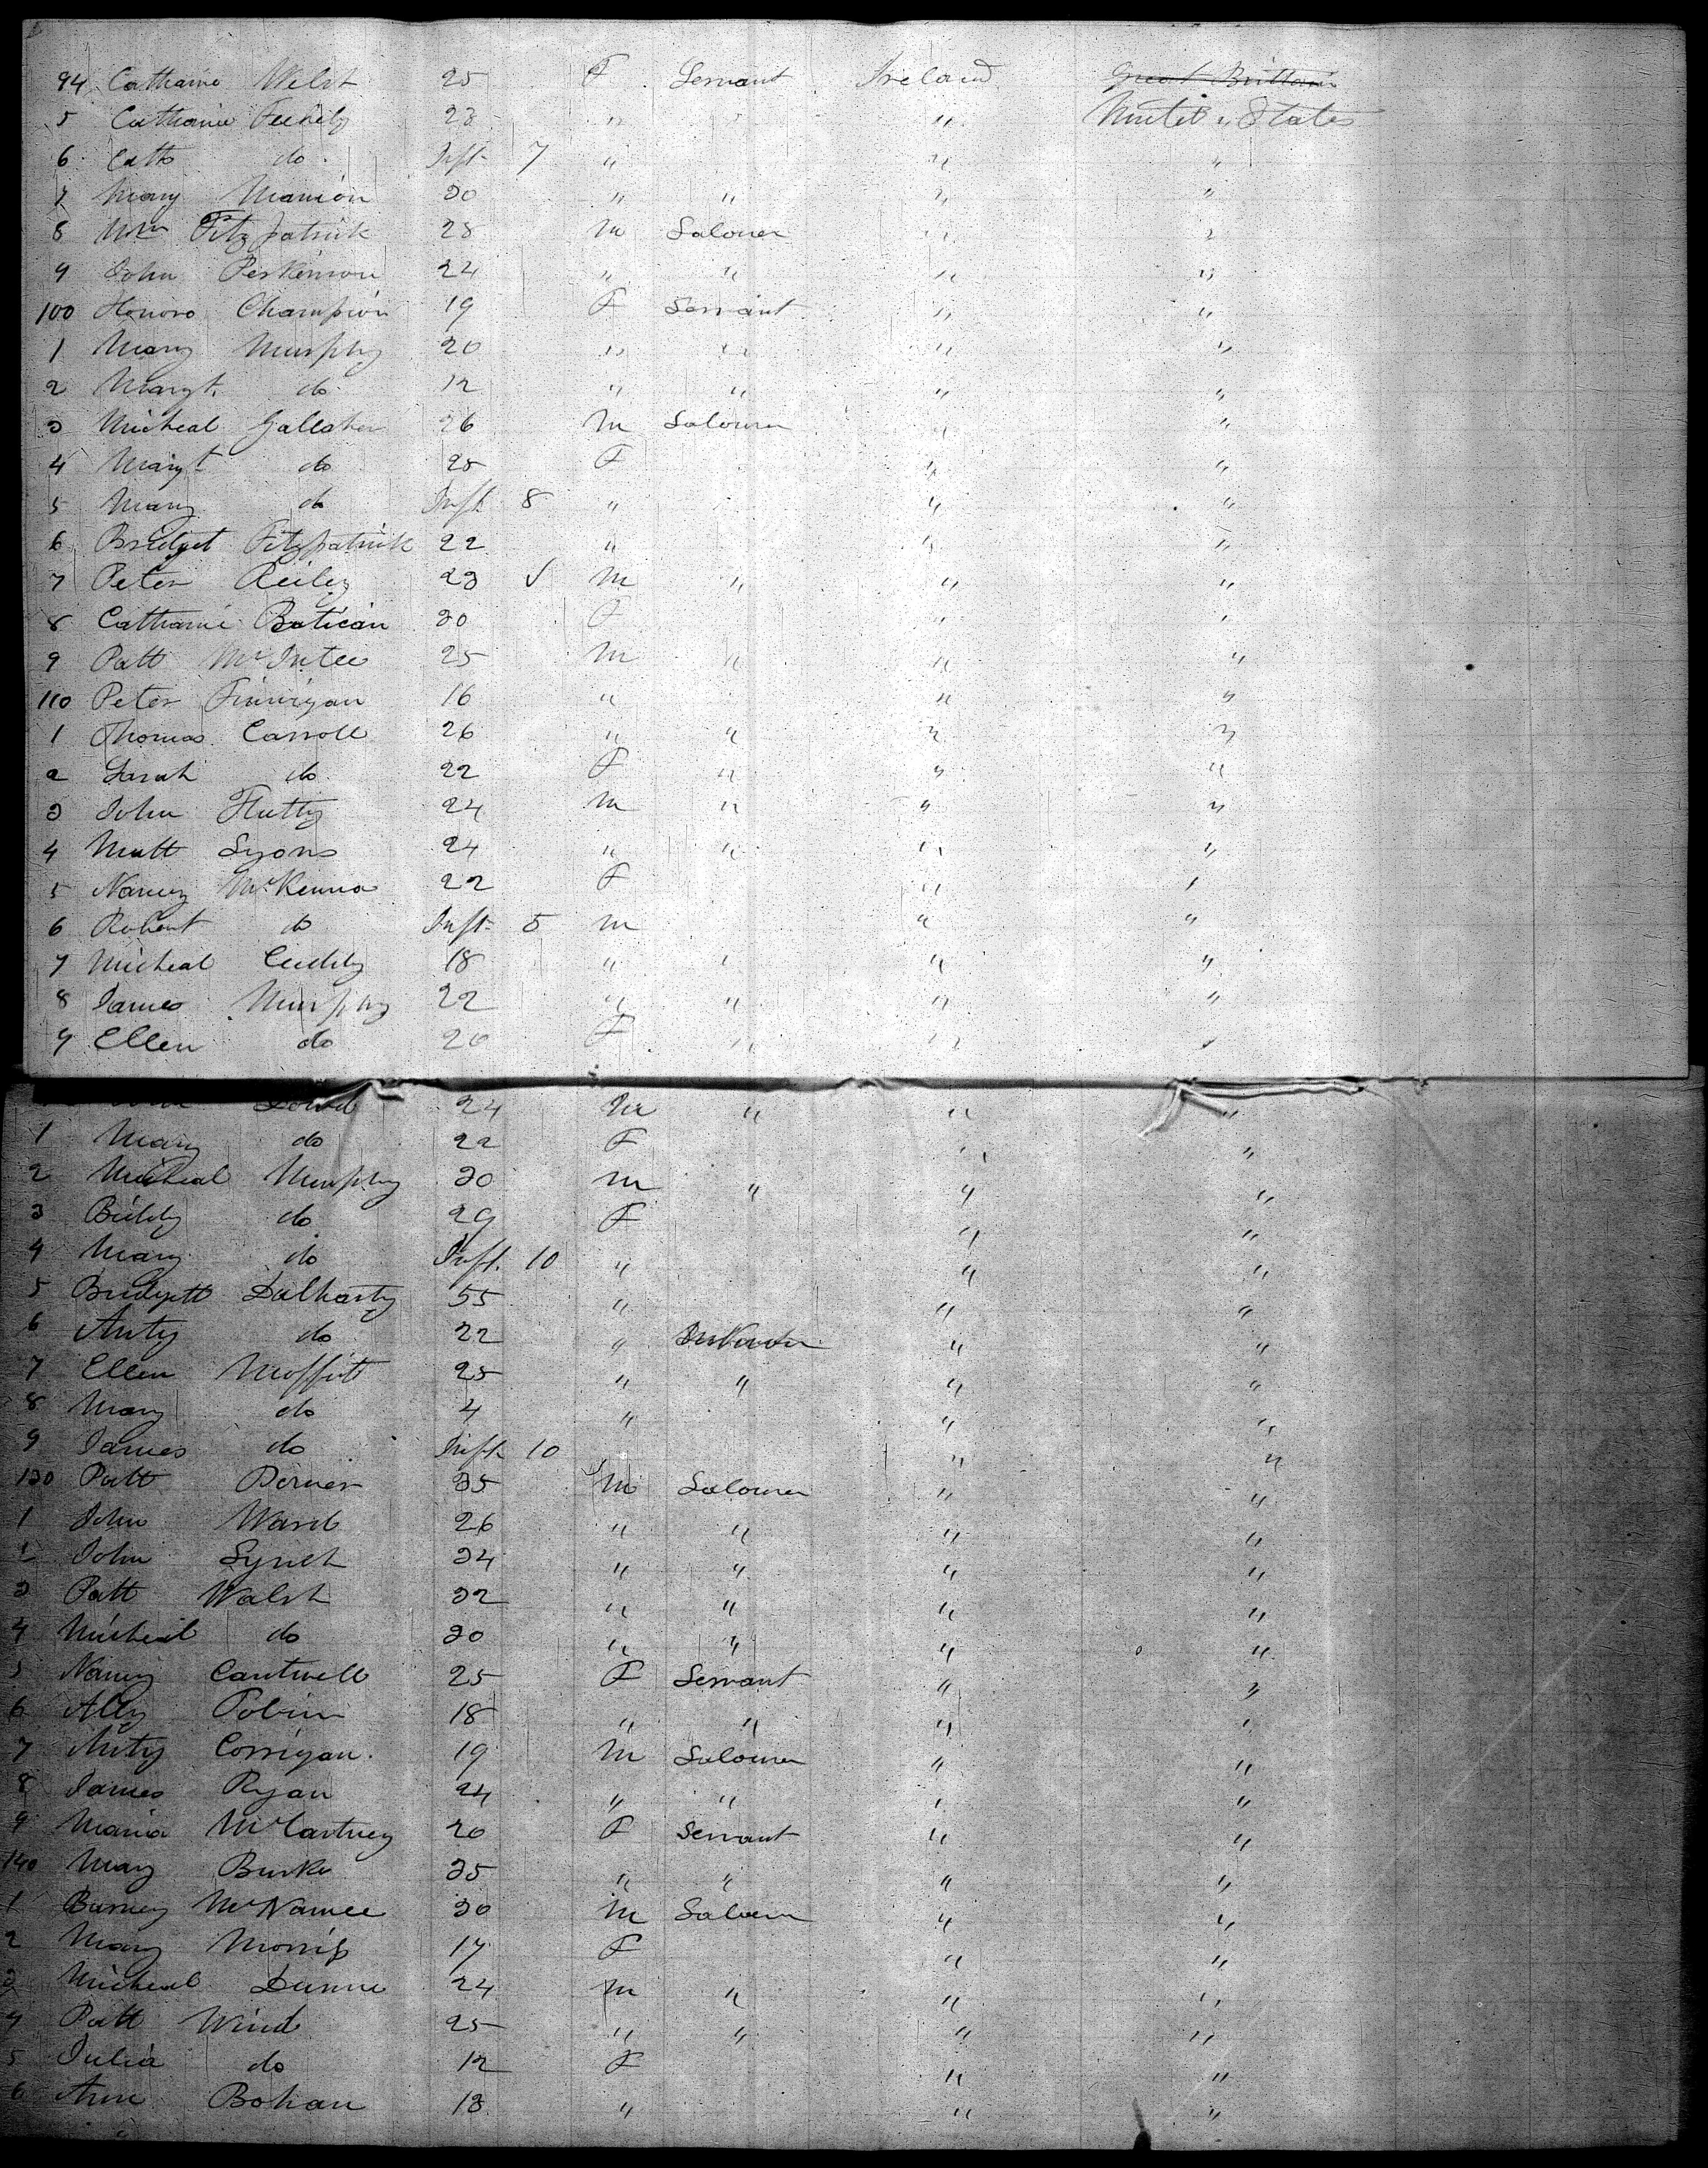 94 Catharine Welsh 25 F Servant Ireland Great Brittain
5 Catharine Feehely 23 " " United States
6 Cath do Inft 7 " " "
7 Mary Manion 30 " " " "
8 Wm Fitzpatrick 28 M Labourer " "
9 John Perkinson 24 " " " "
100 Honora Champion 19 F Servant " "
1 Mary Murphy 20 " " " "
2 Margt. do 12 " " " "
3 Micheal Gallaher 26 M Labourer " "
4 Margt do 25 F " "
5 Mary do Inft 8 " " "
6 Bridget Fitzpatrick 22 " " "
7 Peter Reiley 23 ✓ M " " "
8 Catharine Batican 30 F " "
9 Patt McIntee 25 M " " "
110 Peter Finnigan 16 " " "
1 Thomas Carroll 26 " " " "
2 Sarah do 22 F " " "
3 John Flutty 24 M " " "
4 Matt Lyons 24 " " " "
5 Nancy McKenna 22 F " "
6 Robert do Inft 5 M " "
7 Micheal Cuddy 18 " " " "
8 James Murphy 22 " " " "
9 Ellen do 20 F " " "
Dowd 24 M " " "
1 Mary do 22 F " "
2 Micheal Murphy 30 M " " "
3 Biddy do 29 F " "
4 Mary do Inft. 10 " " "
5 Bridgett Dalharty 55 " " "
6 Anty do 22 " " "
7 Ellen Moffitt 25 " " " "
8 Mary do 4 " " "
9 James do Inft 10 " "
130 Patt 35 M Labourer " "
1 John Ward 26 " " " "
2 John Lynch 34 " " " "
3 Patt Walsh 32 " " " "
4 Micheal do 30 " " " "
5 Nancy Cantwell 25 F Servant " "
6 Ally Tobin 18 " " " "
7 Anty Corrigan. 19 M Labourer " "
8 James Ryan 24 " " " "
9 Maria McCartney 20 F Servant " "
140 Mary Burke 35 " " " "
1 Barney McNamee 30 M Labourer " "
2 Mary Morris 17 F " "
3 Micheal Dunne 24 M " " "
4 Patt Wind 25 " " " "
5 Julia do 12 F " "
6 Ann Bohan 18 " " "